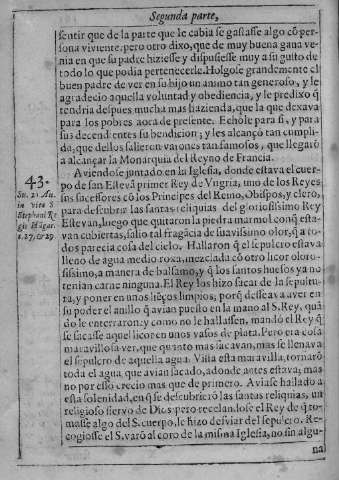 Segunda parte,
sentir que de la parte que le cabia se gastasse algo cõ per-
sona viviente: pero otro dixo, que de muy buena gana ve-
nia en que su padre hiziesse y dispusiesse muy a su gusto de
todo lo que podia pertenecerle. Holgose grandemente el
buen padre de ver en su hijo un animo tan generoso, y le
agradecio aquella voluntad y obediencia, y le predixo q̃
tendria despues mucha mas hazienda, que la que dexava
para los pobres aora de presente. Echòle para si, y para
sus decendientes su bendicion; y les alcançò tan cumpli-
da, que dellos salieron varones tan famosos, que llegarõ
a alcançar la Monarquia del Reyno de Francia.
43.
Aviendose juntado en la Iglesia, donde estava el cuer-
po de san Estevã primer Rey de Vngria, uno de los Reyes
sus sucessores cõ los Principes del Reino, Obispos, y clero,
para descubrir las santas reliquias del gloriosissimo Rey
Estevan, luego que quitaron la piedra marmol conq̃ esta-
van cubiertas, salio tal fragãcia de suavissimo olor, q̃ a to-
dos parecia cosa del cielo. Hallaron q̃ el sepulcro estava
lleno de agua medio roxa, mezclada cõ otro licor oloro-
sissimo, a manera de balsamo, y q̃ los santos huesos ya no
tenian carne ninguna. El Rey los hizo sacar de la sepultu-
ra, y poner en unos liẽços limpios; porq̃ desseava aver en
su poder el anillo q̃ avian puesto en la mano al S. Rey, quã
do le enterraron: y como no le hallassen, mandò el Rey q̃
se sacasse aquel licor en unos vasos de plata. Pero era cosa
maravillosa ver, que quanto mas sacavan, mas se llenava
el sepulcro de aquella agua. Vista esta maravilla, tornarõ
toda el agua, que avian sacado, adonde antes estava; mas
no por esso crecio mas que de primero. Aviase hallado a
esta solenidad, en q̃ se descubrierõ las santas reliquias, un
religioso siervo de Dios: pero recelandose el Rey de q̃ to-
masse algo del S. cuerpo, le hizo desviar del sepulcro. Re-
cogiosse el S. varõ al coro de la misma Iglesia, no sin algu-
na
in vita S.
Stephani Re
gis